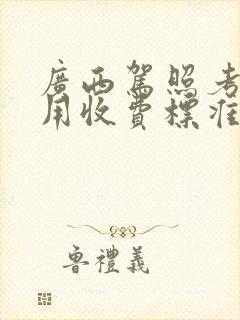 廣西駕照考
用收費標准
魯禮義